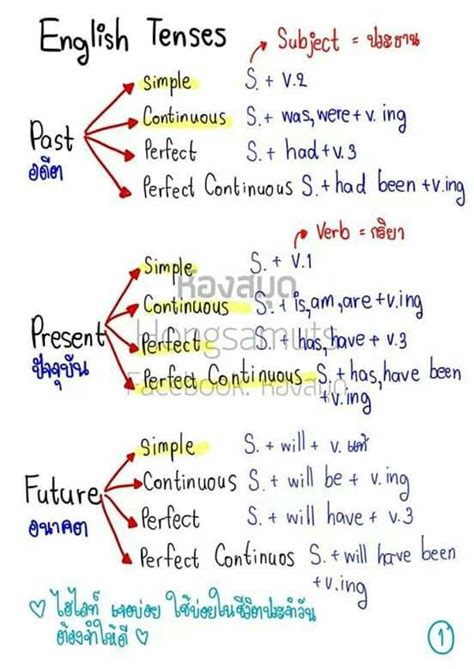 English Tenses
Subject = ประธาน
Simple S. + v.2
Continuous S.+ was, were + v. ing
Past
อดีต
Perfect S. + had + v.3
Perfect Continuous S. + had been + v.ing
Verb = กริยา
Simple S. + v.1
ห้องสมุด
Continuous S. + is, am, are + v.ing
Present
ปัจจุบัน
Hongsamut
Perfect S. + has, have + v.3
Facebook: ห้องสมุด
Perfect Continuous S. + has, have been
+ v.ing
Simple S. + will + v. แท้
Future
อนาคต
Continuous S. + will be + v. ing
Perfect S. + will have + v.3
Perfect Continuos S. + will have been
+ v.ing
♡ ไฮไลท์ เจอบ่อย ใช้บ่อยในชีวิตประจำวัน
ต้องจำให้ดี ♡
1